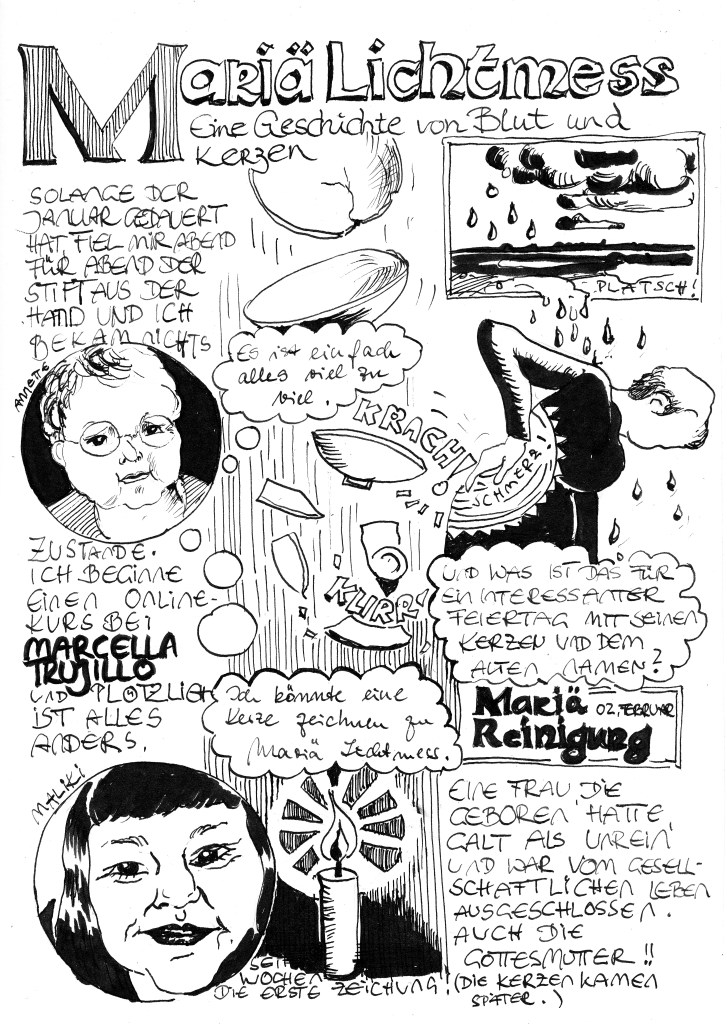 Mariä Lichtmess
Eine Geschichte von Blut und
Kerzen
SOLANGE DER
JANUAR GEDAUERT
HAT FIEL MIR ABEND
FÜR ABEND DER
STIFT AUS DER
HAND UND ICH
BEKAM NICHTS
ANNETTE
ZUSTANDE.
ICH BEGINNE
EINEN ONLINE-
KURS BEI
MARCELLA
TRUJILLO
UND PLÖTZLICH
IST ALLES
ANDERS.
MALIKI
Es ist einfach
alles viel zu
viel.
KRACH!
KLIRR!
Ich könnte eine
Kerze zeichnen zu
Mariä Lichtmess.
SEIT
WOCHEN
DIE ERSTE ZEICHUNG!
PLATSCH!
SCHMERZ!
UND WAS IST DAS FÜR
EIN INTERESSANTER
FEIERTAG MIT SEINEN
KERZEN UND DEM
ALTEN NAMEN?
Mariä 02. FEBRUAR
Reinigung
EINE FRAU DIE
GEBOREN HATTE,
GALT ALS UNREIN
UND WAR VOM GESELL-
SCHAFTLICHEN LEBEN
AUSGESCHLOSSEN.
AUCH DIE
GOTTESMUTTER!!
(DIE KERZEN KAMEN
SPÄTER.)